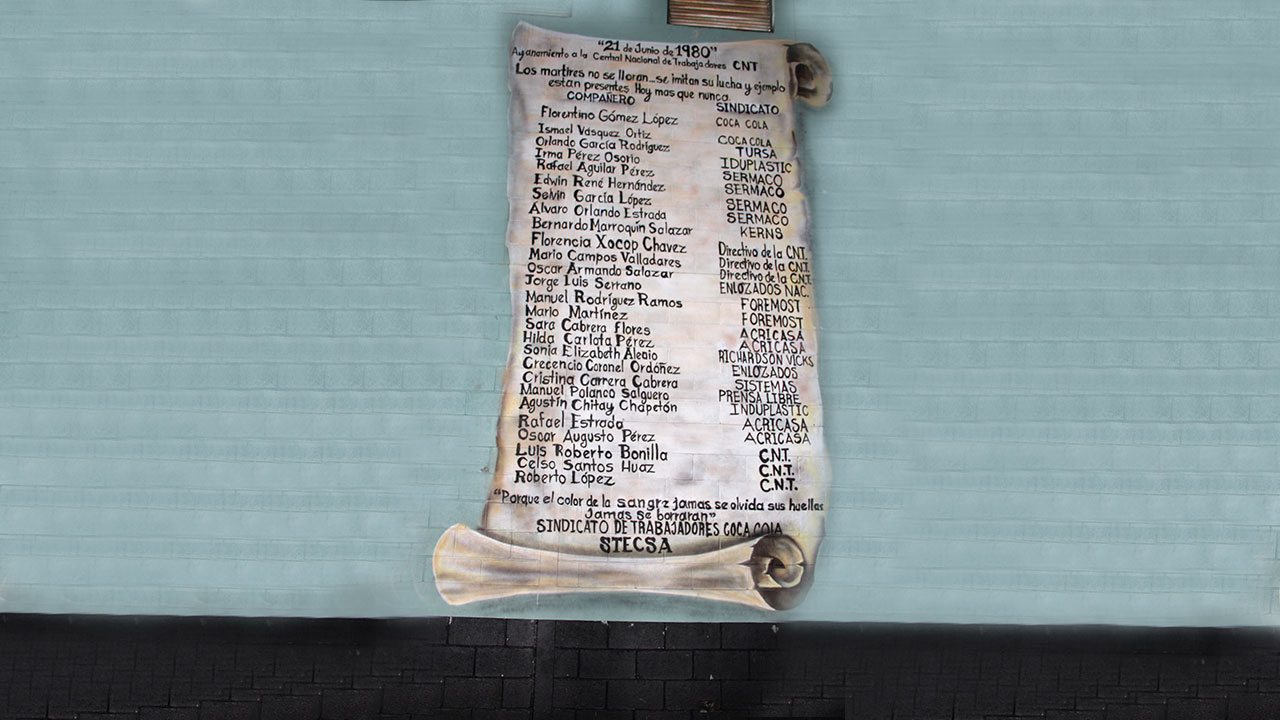 "21 de Junio de 1980"
Ayanamiento a la Central Nacional de Trabajadores CNT
Los martires no se lloran...se imitan su lucha y ejemplo
estan presentes Hoy mas que nunca.
COMPAÑERO SINDICATO
Florentino Gómez López COCA COLA
Ismael Vásquez Ortiz COCA COLA
Orlando García Rodríguez TURSA
Irma Pérez Osorio IDUPLASTIC
Rafael Aguilar Pérez SERMACO
Edwin René Hernández SERMACO
Selvin García López SERMACO
Álvaro Orlando Estrada SERMACO
Bernardo Marroquín Salazar KERNS
Florencia Xocop Chavez Directivo de la CNT.
Mario Campos Valladares Directivo de la CNT.
Oscar Armando Salazar Directivo de la C.N.T.
Jorge Luis Serrano ENLOZADOS NAC.
Manuel Rodríguez Ramos FOREMOST
Mario Martínez FOREMOST
Sara Cabrera flores ACRICASA
Hilda Carlota Pérez ACRICASA
Sonia Elizabeth Alecio RICHARDSON VICKS
Crecencio Coronel Ordóñez ENLOZADOS
Cristina Carrera Cabrera SISTEMAS
Manuel Polanco Salguero PRENSA LIBRE
Agustín Chitay Chapetón INDUPLASTIC
Rafael Estrada ACRICASA
Oscar Augusto Pérez ACRICASA
Luis Roberto Bonilla C.N.T.
Celso Santos Huaz C.N.T.
Roberto López C.N.T.
"Porque el color de la sangre jamas se olvida sus huellas
Jamas se borraran"
SINDICATO DE TRABAJADORES COCA COLA
STECSA